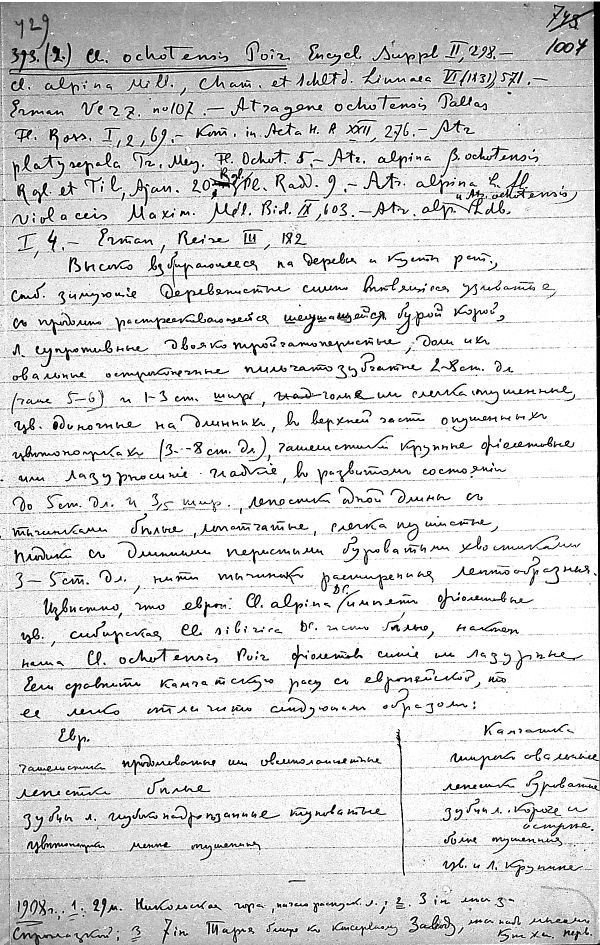 729
743
1004
393. (2.) Cl. ochotensis Poir. Encycl. Suppl. II, 298.—
Cl. alpina Mill., Cham. et Schltd. Linnaea VI (1831), 571.—
Erman Verz. no 107.— Atragene ochotensis Pallas
Fl. Ross. I, 2, 69.— Kom. in Acta H. P. XXII, 276.— Atr.
platysepala Tr. Mey. Fl. Ochot. 5.— Atr. alpina β. ochotensis
Rgl. et Til. Ajan. 20 Rgl. Pl. Radd. 9.— Atr. alpina L. fl.
violaceis Maxim. Mél. Biol. IX, 603.— Atr. alp. и Atr. ochotensis Ldb.
I, 4.— Erman, Reise III, 182
Высоко взбирающееся на деревья и кусты раст.,
стеб. зимующие деревянистые сильно ветвящиеся узловатые,
съ продольно растрескивающейся шелушащейся бурой корой,
л. супротивные двояко тройчатоперистые, доли ихъ
овальные остроконечные пильчатозубчатые 2–8 cm. дл
(чаще 5–6) и 1–3 cm. шир., голые или слегка опушенные,
цв. одиночные на длинныхъ, въ верхней части опушенныхъ
цветоножкахъ (3–8 cm. дл.), чашелистики крупные фіолетовые
или лазурносиніе гладкіе, въ развитомъ состояніи
до 5 cm. дл. и 3,5 шир., лепестки одной длины съ
тычинками белые, лопатчатые, слегка пушистые,
плодики съ длинными перистыми буроватыми хвостиками
3–5 cm. дл., нити тычинокъ расширенныя лентообразныя.
Известно, что европ. Cl. alpina Dc. имеетъ фіолетовые
цв., сибирская Cl. sibirica Dc. чисто белые,
наша Cl. ochotensis Poir фіолетов. синіе или лазурные
Если сравнить камчатскую расу съ европейской, то
ее легко отличить следующимъ образомъ:
Евр.
Камчатка
чашелистики продолговатые или овальноланцетные
широко овальные
лепестки белые
лепестки буроватые
зубцы л. глубоконадрезанные туповатые
зубцы л. короче и острые.
цветоножки менее опушенныя
более опушенныя
цв. и л. крупнее
1908 г., 1. 29 м. Никольская гора, начало распуск. л.; 2. 3 in
3 7 in Таръя близъ къ Заводу,